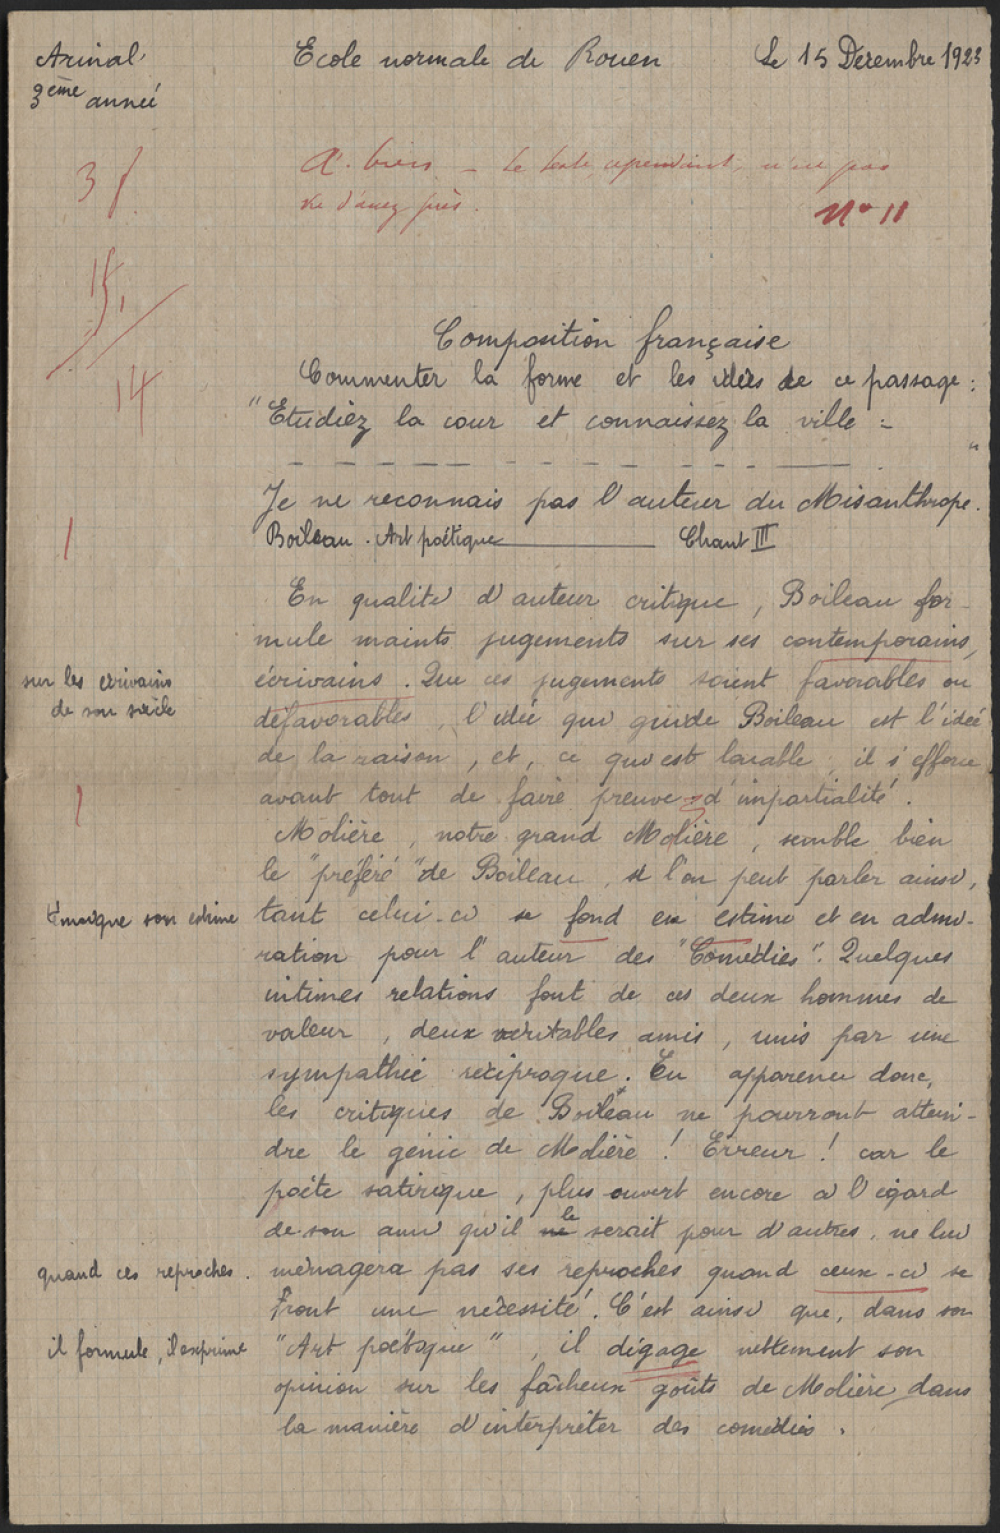 Arinal
Ecole normale de Rouen
Le 15 Décembre 1923
3ème année
A. bien – Le texte, cependant, n'est pas
N° 11
15
14
Composition française
Commenter la forme et les idées de ce passage :
"Etudiez la cour et connaissez la ville :
"
Je ne reconnais pas l'auteur du Misanthrope.
Boileau. Art poétique Chant III
En qualité d'auteur critique, Boileau for-
mule maints jugements sur ses contemporains,
sur les écrivains
de son siècle
écrivains. Que ces jugements soient favorables ou
défavorables, l'idée qui guide Boileau est l'idée
de la raison, et, ce qui est louable, il s'efforce
avant tout de faire preuve d'impartialité.
Molière, notre grand Molière, semble bien
le "préféré" de Boileau, si l'on peut parler ainsi,
marque son estime
tant celui-ci se fond en estime et en admi-
ration pour l'auteur des "Comédies". Quelques
intimes relations font de ces deux hommes de
valeur, deux véritables amis, unis par une
sympathie réciproque. En apparence donc,
les critiques de Boileau ne pourront attein-
dre le génie de Molière ! Erreur ! car le
poète satirique, plus ouvert encore à l'égard
de son ami qu'il ne le serait pour d'autres, ne lui
quand ces reproches.
ménagera pas ses reproches quand ceux-ci se
front une nécessité. C'est ainsi que, dans son
il formule, il exprime
"Art poétique", il dégage nettement son
opinion sur les fâcheux goûts de Molière, dans
la manière d'interpréter des comédies.